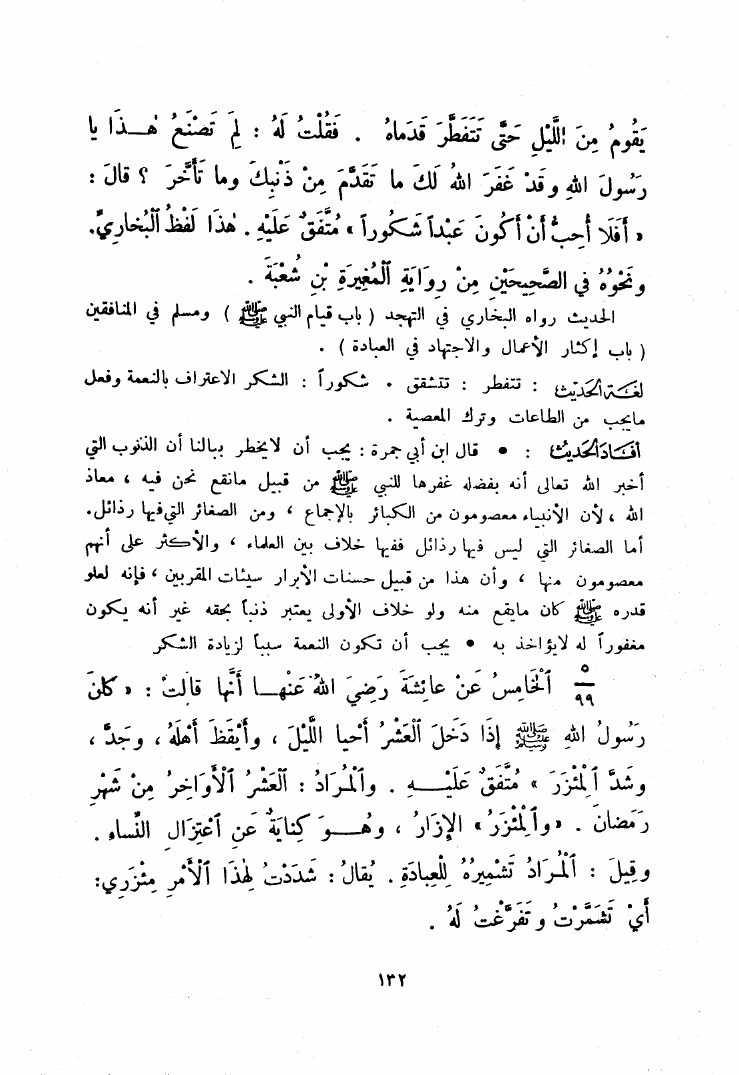 يَقُومُ مِنَ اللَّيْلِ حَتَّى تَتَفَطَّرَ قَدَمَاهُ . فَقُلْتُ لَهُ : لِمَ تَصْنَعُ هٰـذَا يا
رَسُولَ اللهِ وقَدْ غَفَرَ اللهُ لَكَ ما تَقَدَّمَ مِنْ ذَنْبِكَ وما تَأَخَّرَ ؟ قالَ :
« أَفَلَا أُحِبُّ أَنْ أَكُونَ عَبْداً شَكُوراً » مُتَّفَقٌ عَلَيْهِ . هٰذَا لَفْظُ ٱلْبُخارِيِّ.
ونَحْوُهُ في الصَّحِيحَيْنِ مِنْ رِوَايَةِ ٱلْمُغِيرَةِ بْنِ شُعْبَةَ .
الحديث رواه البخاري في التهجد ( باب قيام النبي ﷺ ) ومسلم في المنافقين
( باب إكثار الأعمال والاجتهاد في العبادة ) .
لغة الحديث : تتفطر : تتشقق . شكوراً : الشكر الاعتراف بالنعمة وفعل
مايجب من الطاعات وترك المعصية .
أفاد الحديث : • قال ابن أبي جمرة : يجب أن لايخطر ببالنا أن الذنوب التي
أخبر الله تعالى أنه بفضله غفرها للنبي ﷺ من قبيل مانقع نحن فيه ، معاذ
الله ، لأن الأنبياء معصومون من الكبائر بالإجماع ، ومن الصغائر التي فيها رذائل.
أما الصغائر التي ليس فيها رذائل ففيها خلاف بين العلماء ، والأكثر على أنهم
معصومون منها ، وأن هذا من قبيل حسنات الأبرار سيئات المقربين ، فإنه لعلو
قدره ﷺ كان مايقع منه ولو خلاف الأولى يعتبر ذنباً بحقه غير أنه يكون
مغفوراً له لايؤاخذ به • يجب أن تكون النعمة سبباً لزيادة الشكر
٥/٩٩ ٱلْخَامِسُ عَنْ عائِشَةَ رَضِيَ اللهُ عَنْهـا أَنَّها قالَتْ : « كانَ
رَسُولُ اللهِ ﷺ إِذَا دَخَلَ ٱلْعَشْرُ أَحْيا اللَّيْلَ ، وأَيْقَظَ أَهْلَهُ ، وجَدَّ ،
وشَدَّ ٱلْمِئْزَرَ » مُتَّفَقٌ عَلَيْـهِ . وٱلْمُرَادُ : ٱلْعَشْرُ ٱلْأَوَاخِرُ مِنْ شَهْرِ
رَمَضَانَ . «وٱلْمِئْزَرُ» الإِزَارُ ، وهُـوَ كِنايَةٌ عَنِ ٱعْتِزَالِ النِّساءِ .
وقِيلَ : ٱلْمُرَادُ تَشْمِيرُهُ لِلْعِبادَةِ . يُقالُ : شَدَدْتُ لِهٰذَا ٱلْأَمْرِ مِئْزَرِي:
أَيْ تَشَمَّرْتُ وتَفَرَّغْتُ لَهُ .
١٣٢